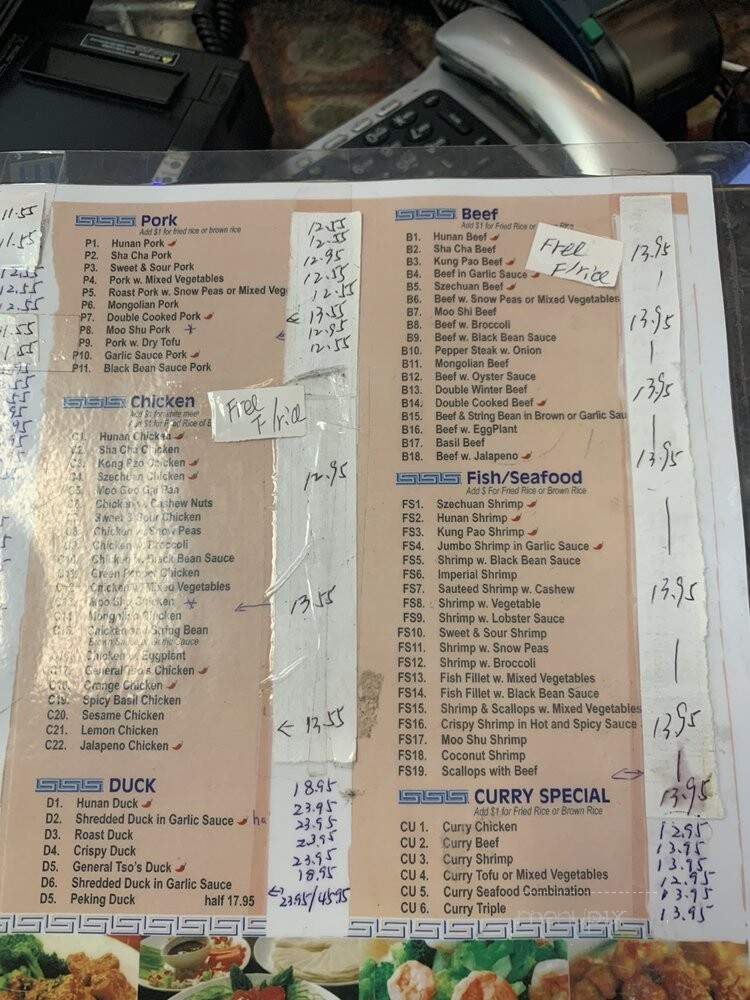 11.55
11.55
12.55
12.55
12.55
11.55
Pork
Add $1 for fried rice or brown rice
P1. Hunan Pork
P2. Sha Cha Pork
P3. Sweet & Sour Pork
P4. Pork w. Mixed Vegetables
P5. Roast Pork w. Snow Peas or Mixed Veg
P6. Mongolian Pork
P7. Double Cooked Pork
P8. Moo Shu Pork
P9. Pork w. Dry Tofu
P10. Garlic Sauce Pork
P11. Black Bean Sauce Pork
12.55
12.55
12.95
12.55
12.55
13.55
12.95
12.55
Chicken
Free F/rice
C1. Hunan Chicken
C2. Sha Cha Chicken
C3. Kong Pao Chicken
C4. Szechuan Chicken
C5. Moo Goo Gai Pan
C6. Chicken w. Cashew Nuts
C7. Sweet & Sour Chicken
C8. Chicken w. Snow Peas
Chicken w. Broccoli
Chicken w. Black Bean Sauce
Green Pepper Chicken
Chicken w. Mixed Vegetables
Moo Shu Chicken
C14. Mongolian Chicken
C15. Chicken w. String Bean
Brown Sauce or Garlic Sauce
C16. Chicken w. Eggplant
C17. General Tso's Chicken
C18. Orange Chicken
C19. Spicy Basil Chicken
C20. Sesame Chicken
C21. Lemon Chicken
C22. Jalapeno Chicken
12.95
13.55
13.55
DUCK
D1. Hunan Duck
D2. Shredded Duck in Garlic Sauce
D3. Roast Duck
D4. Crispy Duck
D5. General Tso's Duck
D6. Shredded Duck in Garlic Sauce
D5. Peking Duck half 17.95
18.95
23.95
23.95
23.95
23.95
18.95
23.95/45.95
Beef
Add $1 for Fried Rice or
Free F/rice
B1. Hunan Beef
B2. Sha Cha Beef
B3. Kung Pao Beef
B4. Beef in Garlic Sauce
B5. Szechuan Beef
B6. Beef w. Snow Peas or Mixed Vegetables
B7. Moo Shi Beef
B8. Beef w. Broccoli
B9. Beef w. Black Bean Sauce
B10. Pepper Steak w. Onion
B11. Mongolian Beef
B12. Beef w. Oyster Sauce
B13. Double Winter Beef
B14. Double Cooked Beef
B15. Beef & String Bean in Brown or Garlic Sau
B16. Beef w. EggPlant
B17. Basil Beef
B18. Beef w. Jalapeno
13.95
13.95
13.95
13.95
Fish/Seafood
Add $ For Fried Rice or Brown Rice
FS1. Szechuan Shrimp
FS2. Hunan Shrimp
FS3. Kung Pao Shrimp
FS4. Jumbo Shrimp in Garlic Sauce
FS5. Shrimp w. Black Bean Sauce
FS6. Imperial Shrimp
FS7. Sauteed Shrimp w. Cashew
FS8. Shrimp w. Vegetable
FS9. Shrimp w. Lobster Sauce
FS10. Sweet & Sour Shrimp
FS11. Shrimp w. Snow Peas
FS12. Shrimp w. Broccoli
FS13. Fish Fillet w. Mixed Vegetables
FS14. Fish Fillet w. Black Bean Sauce
FS15. Shrimp & Scallops w. Mixed Vegetables
FS16. Crispy Shrimp in Hot and Spicy Sauce
FS17. Moo Shu Shrimp
FS18. Coconut Shrimp
FS19. Scallops with Beef
13.95
13.95
13.95
CURRY SPECIAL
Add $1 for Fried Rice or Brown Rice
CU 1. Curry Chicken
CU 2. Curry Beef
CU 3. Curry Shrimp
CU 4. Curry Tofu or Mixed Vegetables
CU 5. Curry Seafood Combination
CU 6. Curry Triple
12.95
13.95
13.95
12.95
13.95
13.95